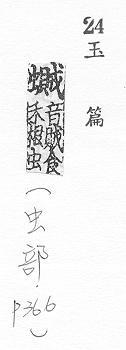 24
玉篇
蠈
音賊食
禾根虫
(虫部. p366)